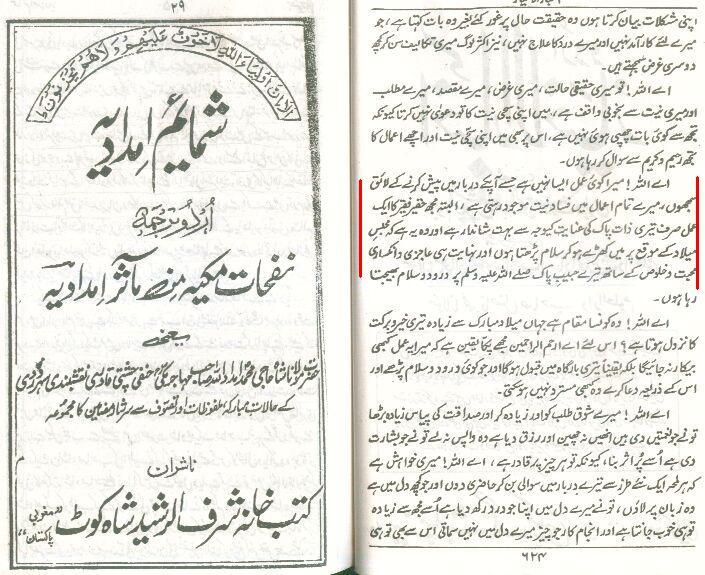 ۲۹
الا ان اولیاء اللہ لا خوف علیھم ولا ھم یحزنون ط
شمائم امدادیہ
اردو ترجمہ
نفحات مکیہ من مآثر امدادیہ
یعنی
حضرت مولانا شاہ حاجی محمد امداد اللہ صاحب مہاجر مکی حنفی چشتی قادری نقشبندی سہروردی
کے حالات مبارکہ ملفوظات اور تصوف سے سرشار مضامین کا مجموعہ
ناشران
کتب خانہ شرف الرشید شاہ کوٹ
مغربی پاکستان
اپنی مشکلات بیان کرتا ہوں وہ حقیقت حال پر غور کئے بغیر وہ بات کہتا ہے، جو
میرے لئے کارآمد نہیں اور میرے درد کا علاج نہیں، نیز اکثر لوگ میری تکالیف سن کر کچھ
دوسری غرض سمجھتے ہیں۔
اے اللہ! تو میری حقیقی حالت، میری غرض، میرے مقصد، میرے مطلب
اور میری نیت سے بخوبی واقف ہے، میں اپنی سچی نیت کا تو دعویٰ نہیں کرتا کیونکہ
تجھ سے کوئی بات چھپی ہوئی نہیں ہے، اس پر بھی میں اپنی سچی نیت اور اچھے اعمال کا
تجھ رحیم و کریم سے سوال کر رہا ہوں۔
اے اللہ! میرا کوئی عمل ایسا نہیں ہے جسے آپکے دربار میں پیش کرنے کے لائق
سمجھوں، میرے تمام اعمال میں فساد نیت موجود رہتی ہے، البتہ مجھ حقیر فقیر کا ایک
عمل صرف تیری ذات پاک کی عنایت کیوجہ سے بہت شاندار ہے اور وہ یہ ہے کہ مجلس
میلاد کے موقع پر میں کھڑے ہو کر سلام پڑھتا ہوں اور نہایت ہی عاجزی و انکساری
محبت و خلوص کے ساتھ تیرے حبیب پاک صلے اللہ علیہ وسلم پر درود و سلام بھیجتا
رہا ہوں۔
اے اللہ! وہ کونسا مقام ہے جہاں میلاد مبارک سے زیادہ تیری خیر و برکت
کا نزول ہوتا ہے؟ اس لئے اے ارحم الراحمین مجھے پکا یقین ہے کہ میرا یہ عمل کبھی
بیکار نہ جائیگا بلکہ یقیناً تیری بارگاہ میں قبول ہوگا اور جو کوئی درود و سلام پڑھے اور
اس کے ذریعہ دعا کرے وہ کبھی مسترد نہیں ہو سکتی۔
اے اللہ! میرے شوق طلب کو اور زیادہ کر اور صداقت کی پیاس زیادہ بڑھا
تو نے جو نعمتیں دی ہیں انھیں نہ چھین اور رزق دیا ہے وہ واپس نہ لے تو نے جو بشارت
دی ہے اُسے پُر اثر بنا، کیونکہ تو ہر چیز پر قادر ہے، اے اللہ! میری خواہش ہے
کہ ہر لمحہ ایک نئے طرز سے تیرے دربار میں سوالی بن کر حاضری دوں اور جو کچھ دل میں ہے
وہ زبان پر لاؤں، تو نے میرے دل میں اپنا جو درد رکھ دیا ہے اُسے مجھ سے زیادہ
تو ہی خوب جانتا ہے اور انجام کار جو چیز میرے دل میں نہیں سماتی اس سے بھی تو ہی
۶۲۴